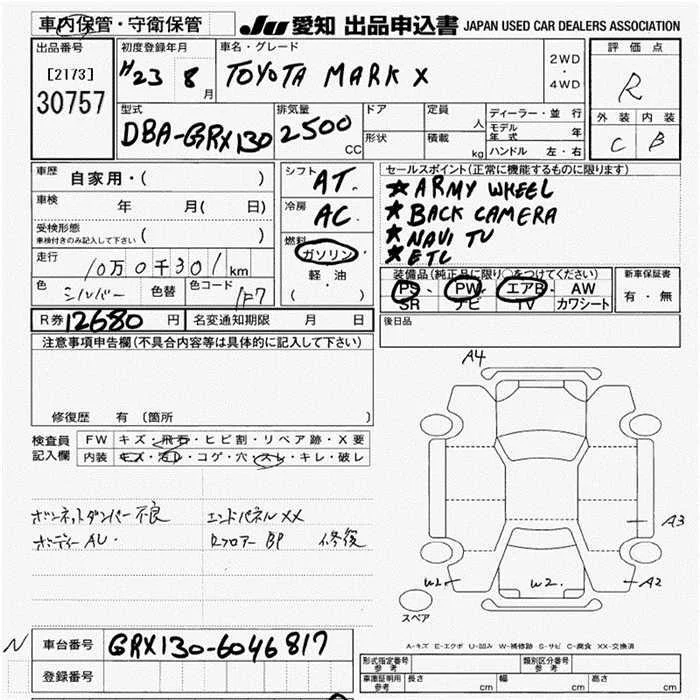 車内保管・守衛保管
JU 愛知 出品申込書 JAPAN USED CAR DEALERS ASSOCIATION
出品番号
[2173]
30757
初度登録年月
H23 8月
車名・グレード
TOYOTA MARK X
2WD
・
4WD
評価点
R
外装 内装
C B
型式
DBA-GRX130
排気量
2500
CC
ドア
形状
定員
人
積載
kg
ディーラー・並行
モデル年式 年
ハンドル 左・右
車歴 自家用・( )
車検 年 月( 日)
受検形態
車検付きのみ記入して下さい ( )
走行 10万0千301km
色 シルバー 色替 色コード 1F7
シフト AT.
冷房 AC
燃料
ガソリン・
軽油
( )
セールスポイント(正常に機能するものに限ります)
★ARMY WHEEL
★BACK CAMERA
★NAVI TV
★ETC
装備品(純正品に限り○をつけてください)
PS・PW・エアB・AW
SR ナビ TV カワシート
新車保証書
有・無
R券 12680 円 名変通知期限 月 日
後日品
注意事項申告欄(不具合内容等は具体的に記入して下さい)
修復歴 有 〔箇所
検査員
記入欄
FW キズ・飛石・ヒビ割・リペア跡・X要
内装 キズ・汚レ・コゲ・穴・スレ・キレ・破レ
ボンネットダンパー不良 エンドパネルXX
ボディーAU・ Rフロアー BP 修復
A4
A3
W1
W2.
A2
スペア
A-キズ E-エクボ U-凹み W-補修跡 S-サビ C-腐食 XX-交換済
N
車台番号 GRX130-6046817
登録番号
形式指定番号
参考
類別区分番号
参考
車庫証明用
参考
長さ cm 幅 cm 高さ cm